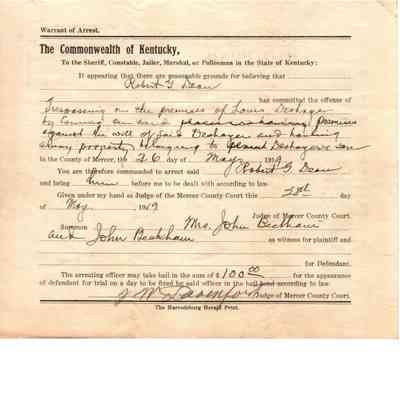 Warrant of Arrest.
The Commonwealth of Kentucky,
To the Sheriff, Constable, Jailer, Marshal, or Policeman in the State of Kentucky:
It appearing that there are reasonable grounds for believing that
Robert G Dean
has committed the offense of
Trespassing on the premises of Louis Deshazer
by coming on said premises
against the will of said Deshazer and hauling
away property belonging to Deshazer's son
in the County of Mercer, the 26 day of May 1919
You are therefore commanded to arrest said Robert G. Dean
and bring him before me to be dealt with according to law.
Given under my hand as Judge of the Mercer County Court this 28th day
of May 1919
Judge of Mercer County Court.
Summon Mrs. John Beckham
and John Beckham as witness for plaintiff and
for Defendant.
The arresting officer may take bail in the sum of $100.00 for the appearance
of defendant for trial on a day to be fixed by said officer in the bail bond according to law.
J W Davenport Judge of Mercer County Court.
The Harrodsburg Herald Print.